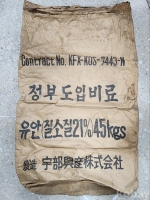 Contract No. KFX-KOS-7443-N
정부도입비료
유안(질소질21%)45kgs
製造 宇部興産株式会社